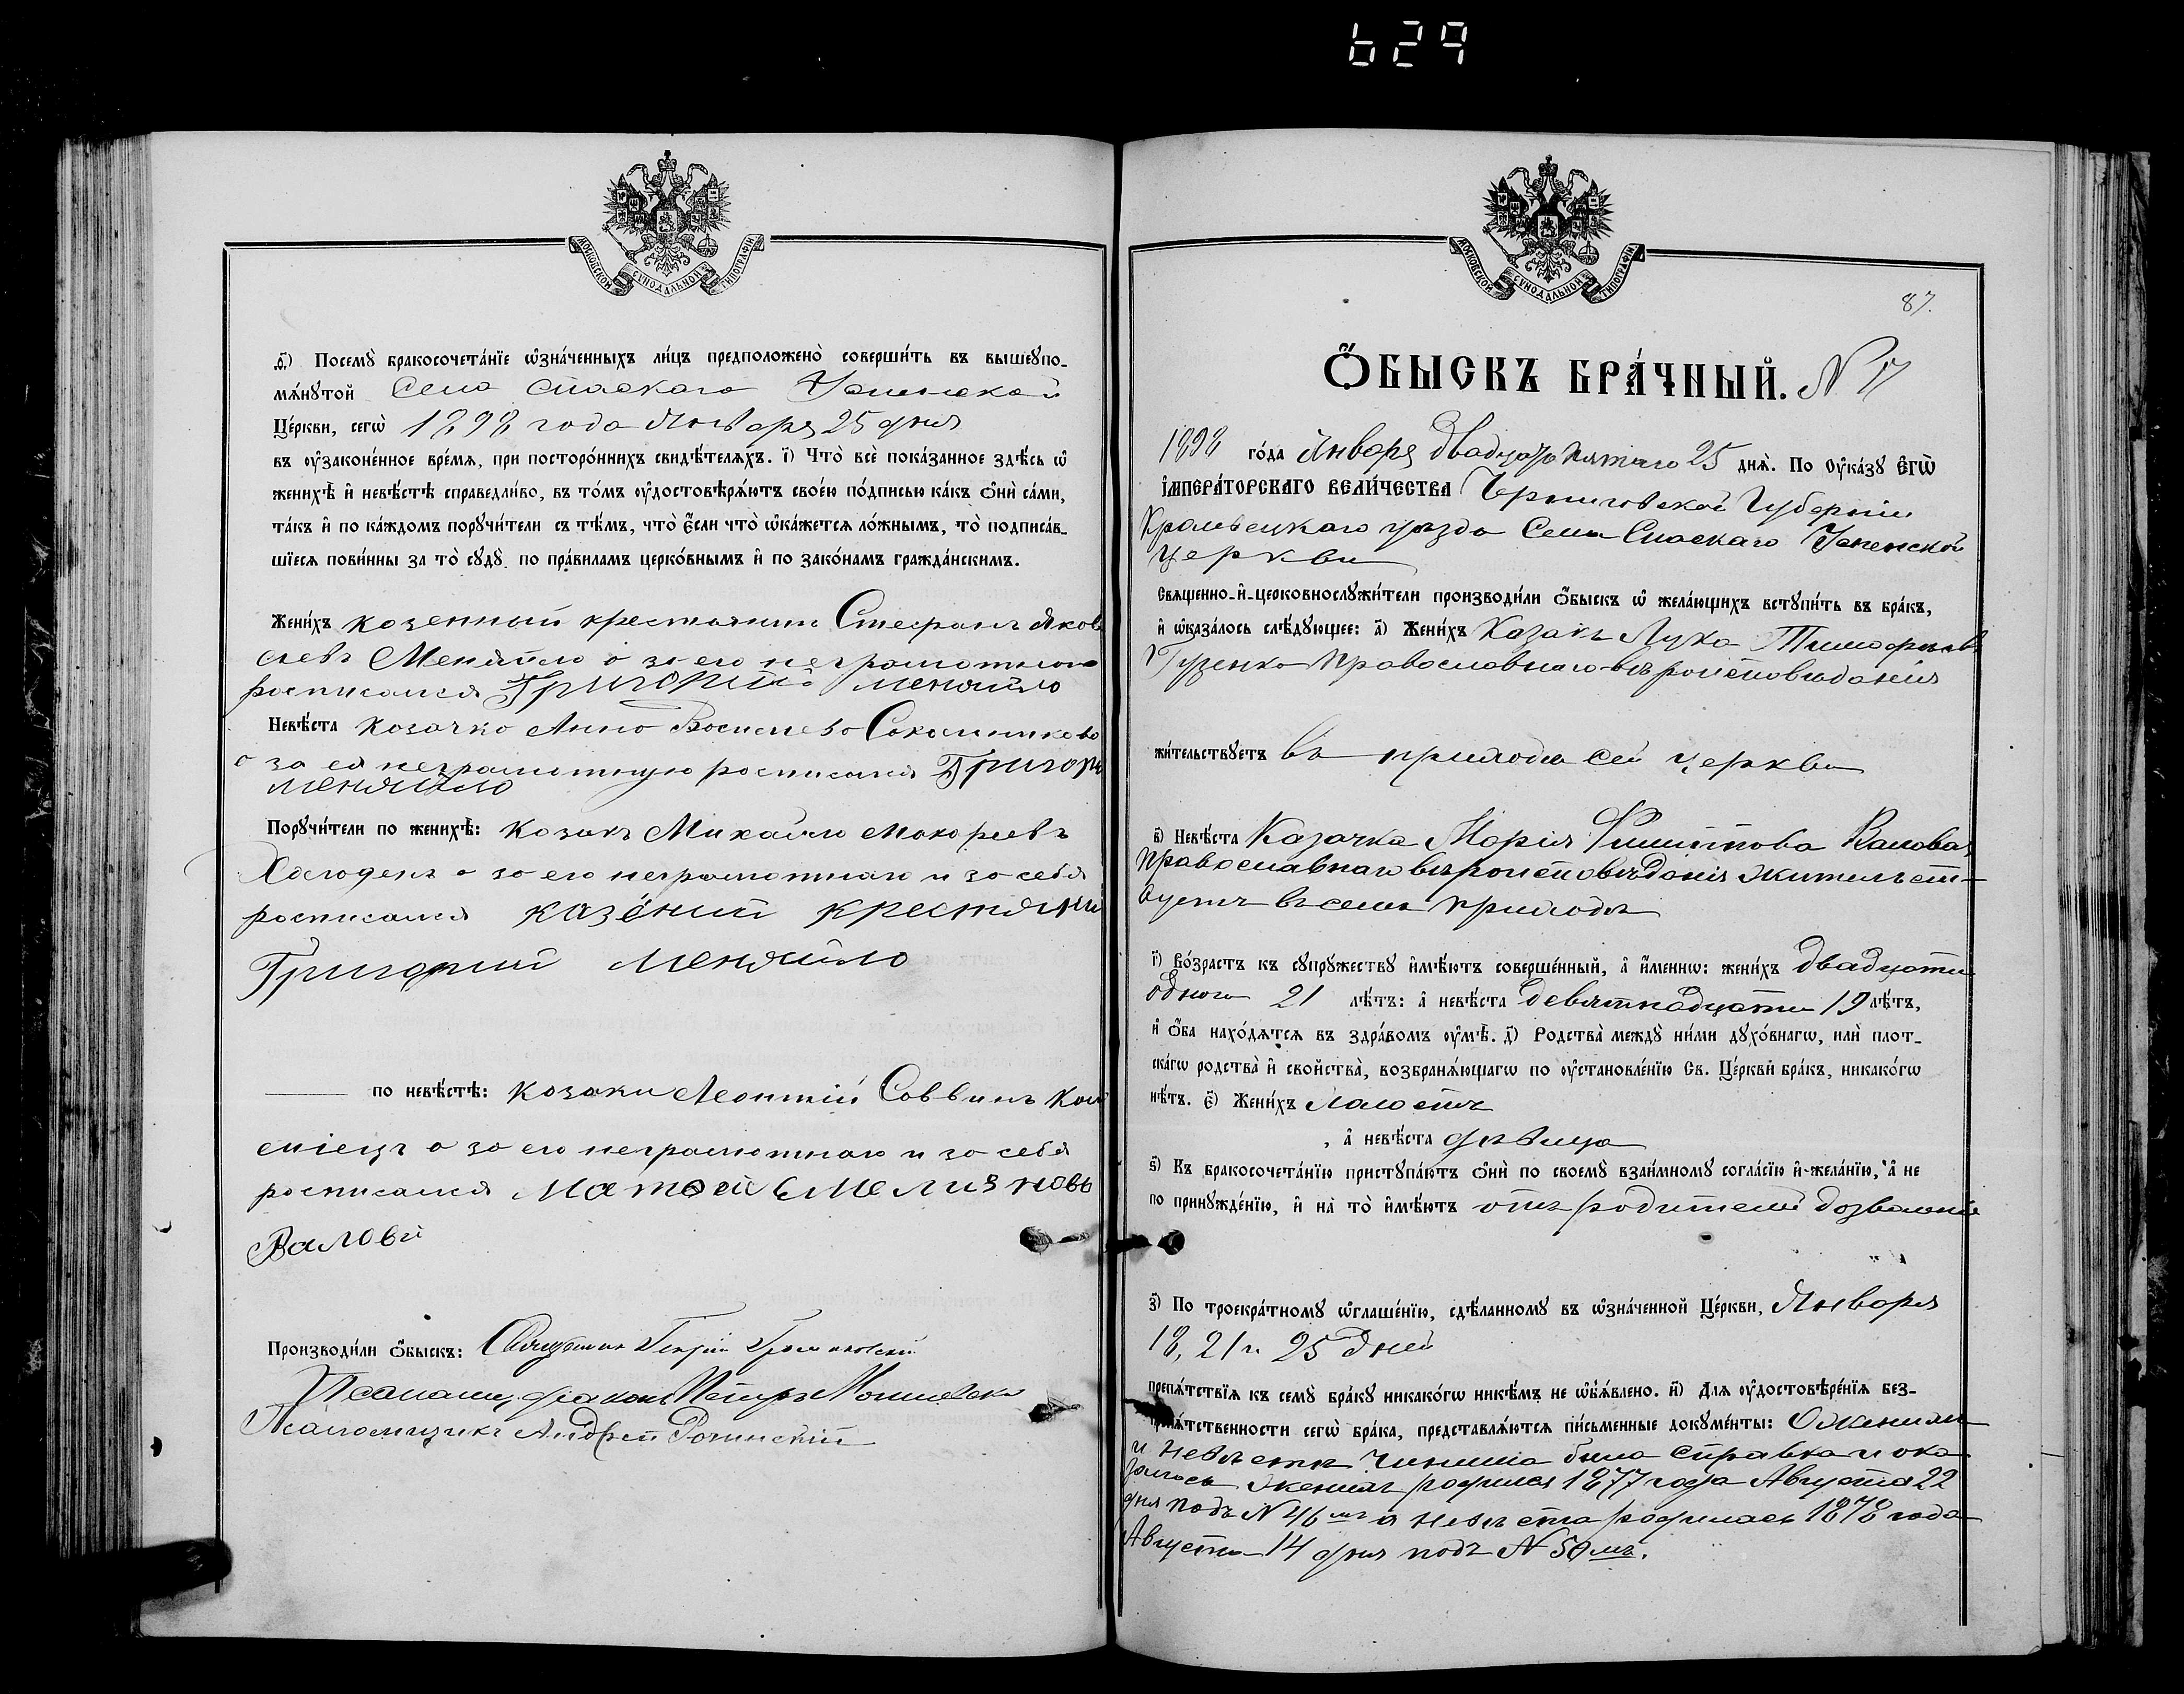 629
МОСКОВСКОЙ СѴНОДАЛЬНОЙ ТИПОГРАФІИ
ѳ҃) Посемꙋ̀ бракосочета́нїе ѡ҆зна́ченныхъ ли́цъ предположено̀ соверши́ть въ вышеꙋпо-
мѧ́нꙋтой Села Спаскаго Успенской
Це́ркви, сегѡ̀ 1898 года Января 25 дня
въ ᲂу҆зако́ненное вре́мѧ, при посторо́ннихъ свидѣ́телѧхъ. і҃) Что̀ всѐ пока́занное здѣ́сь ѡ҆
женихѣ̀ и҆ невѣ́стѣ справедли́во, въ то́мъ ᲂу҆достовѣрѧ́ютъ свое́ю по́дписью ка́къ ѻ҆нѝ са́ми,
та́къ и҆ по ка́ждомъ порꙋчи́тели съ тѣ́мъ, что̀ є҆́сли что̀ ѡ҆ка́жетсѧ ло́жнымъ, то̀ подписа́в-
шїесѧ пови́нны за то̀ сꙋдꙋ̀ по пра́виламъ церко́внымъ и҆ по зако́намъ гражда́нскимъ.
Жени́хъ козенный крестянин Стефанъ Яков
левъ Меняйло а за его неграмотного
росписался Григорий меняйло
Невѣ́ста Козачка Анна Васильева Сокольникова
а за ея неграмотную росписался Григори
меняйло
Порꙋчи́тели по женихѣ̀: Козакъ Михайло Макаревъ
Халоденъ а за его неграмотнаго и за себя
росписался казёний крестяний
Григорий Меняйло
по невѣ́стѣ: Козаки Леонтій Саввинъ Коло
міецъ а за его неграмотнаго и за себя
росписался Матвей Емелияновъ
Валовъ
Производи́ли ѻ҆́быскъ: Священник Георгій
Псаломщ. диаконъ Петръ
Псаломщикъ Андрей Рочинскій
МОСКОВСКОЙ СѴНОДАЛЬНОЙ ТИПОГРАФІИ
87.
Ѻ҆́БЫСКЪ БРА́ЧНЫЙ. N 17
1898 го́да Января двадцать пятаго 25 днѧ̀. По ᲂу҆ка́зꙋ Є҆гѡ̀
І҆МПЕРА́ТОРСКАГО ВЕЛИ́ЧЕСТВА Черниговской Губерніи
Кролевецкаго уезда Села Спаскаго Успенской
церкви
Свѧщенно-и҆-церковнослꙋжи́тели производи́ли ѻ҆́быскъ ѡ҆ жела́ющихъ встꙋпи́ть въ бра́къ,
и҆ ѡ҆каза́лось слѣ́дꙋющее: а҃) Жени́хъ Казакъ Лука Тимофеевъ
Гузенко Православнаго вѣроисповѣданія
жи́тельствꙋетъ въ приходѣ сей церкви
в҃) Невѣ́ста Казачка Марія Филиппова Валова,
Православнаго вѣроисповѣданія жительст-
вуетъ въ семъ приходѣ
г҃) Во́зрастъ къ сꙋпрꙋ́жествꙋ и҆мѣ́ютъ соверше́нный, а҆ и҆́меннѡ: жени́хъ двадцати
одного 21 лѣ́тъ: а҆ невѣ́ста девятнадцати 19 лѣ́тъ,
и҆ ѻ҆́ба нахо́дѧтсѧ въ здра́вомъ ᲂу҆мѣ̀. д҃) Родства̀ междꙋ̀ ни́ми дꙋхо́внагѡ, илѝ плот-
ска́гѡ родства̀ и҆ свойства̀, возбранѧ́ющагѡ по ᲂу҆становле́нїю Св. Це́ркви бра́къ, никако́гѡ
нѣ́тъ. є҃) Жени́хъ холостъ
, а҆ невѣ́ста дѣвица
ѕ҃) Къ бракосочета́нїю пристꙋпа́ютъ ѻ҆нѝ по своемꙋ̀ взаи́мномꙋ согла́сїю и҆ жела́нїю, а҆ не
по принꙋжде́нїю, и҆ на то̀ и҆мѣ́ютъ отъ родителей дозволеніе
з҃) По троекра́тномꙋ ѡ҆глаше́нїю, сдѣ́ланномꙋ въ ѡ҆зна́ченной Це́ркви, Января
18, 21 и 25 дней
препѧ́тствїѧ къ семꙋ̀ бра́кꙋ никако́гѡ никѣ́мъ не ѡ҆б̾ѧ́влено. и҃) Длѧ ᲂу҆достовѣре́нїѧ без-
препѧ́тственности сегѡ̀ бра́ка, представлѧ́ютсѧ пи́сьменные докꙋме́нты: О женихѣ
и невѣстѣ чинима была справка и ока
залось женихъ родился 1877 года Августа 22
дня подъ N 46 мъ а невѣста родилась 1878 года
Августа 14 дня подъ N 50 мъ.